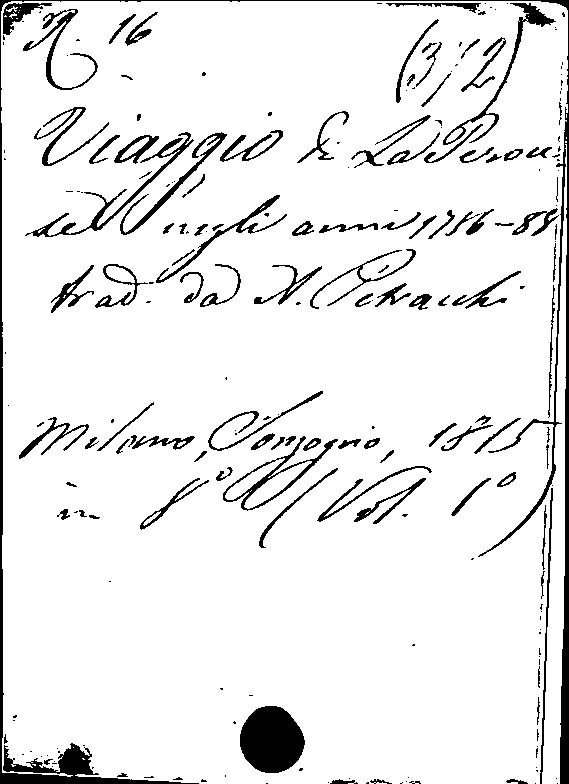 R. 16
(372)
Viaggio di La Perou-
se negli anni 1786-88
trad. da A. Petracchi
Milano, Sonzogno, 1815
in 8º (Vol. 1º)